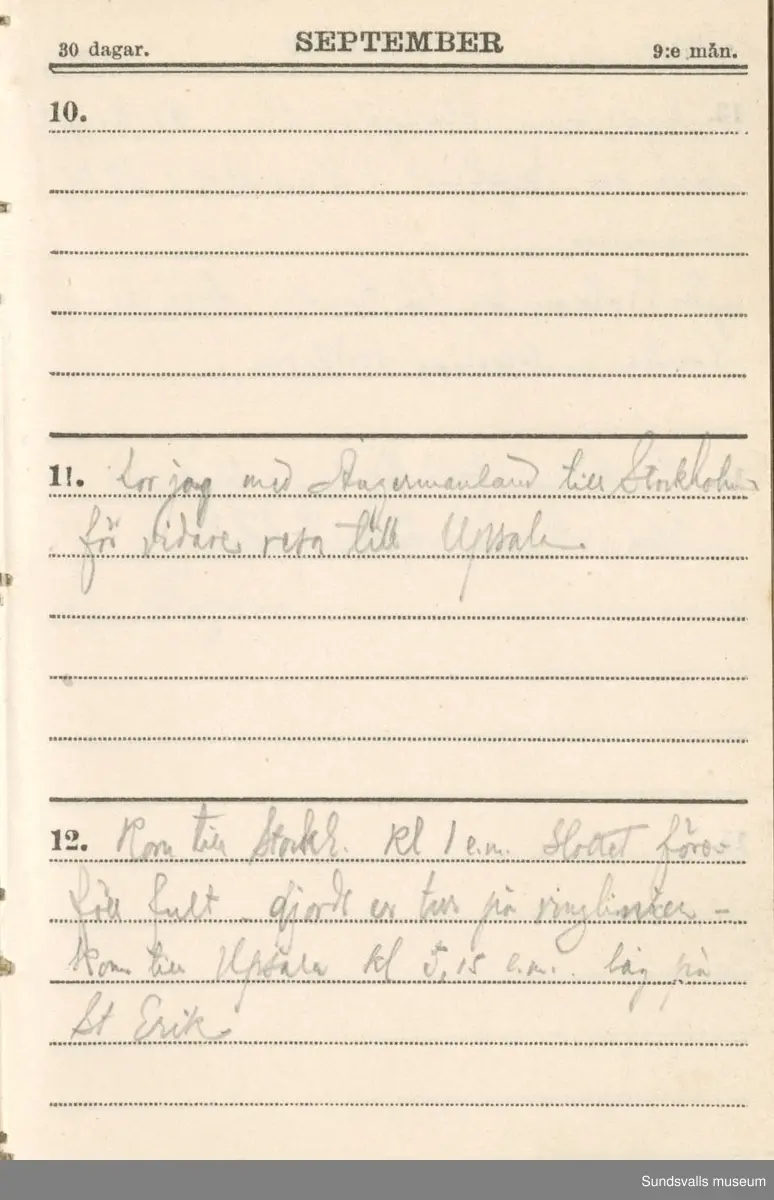 30 dagar. SEPTEMBER 9:e mån.
10.
11. For jag med Ångermanland till Stockholm
för vidare resa till Upsala
12. Kom till Stockh. kl 1 e.m. Slottet före-
föll fult. gjorde en tur på ringlinien –
Kom till Upsala kl 5,15 e.m. låg på
St Erik
Sundsvalls museum